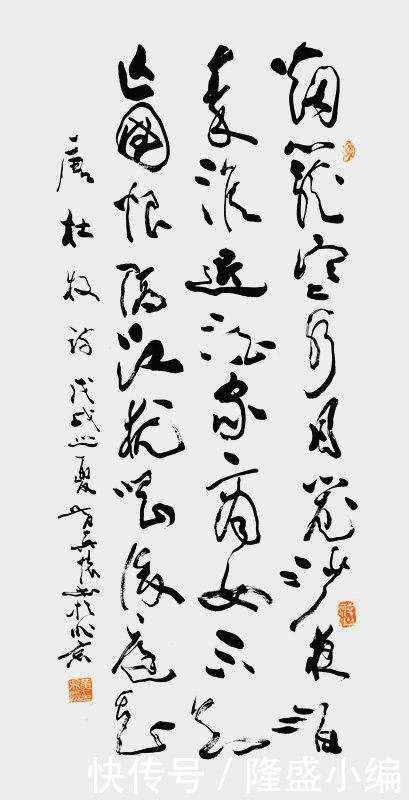 烟籠寒水月籠沙夜泊
秦淮近酒家商女不知
亡國恨隔江犹唱後庭花
唐杜牧詩戊戌之夏
快传号 / 隆盛小编